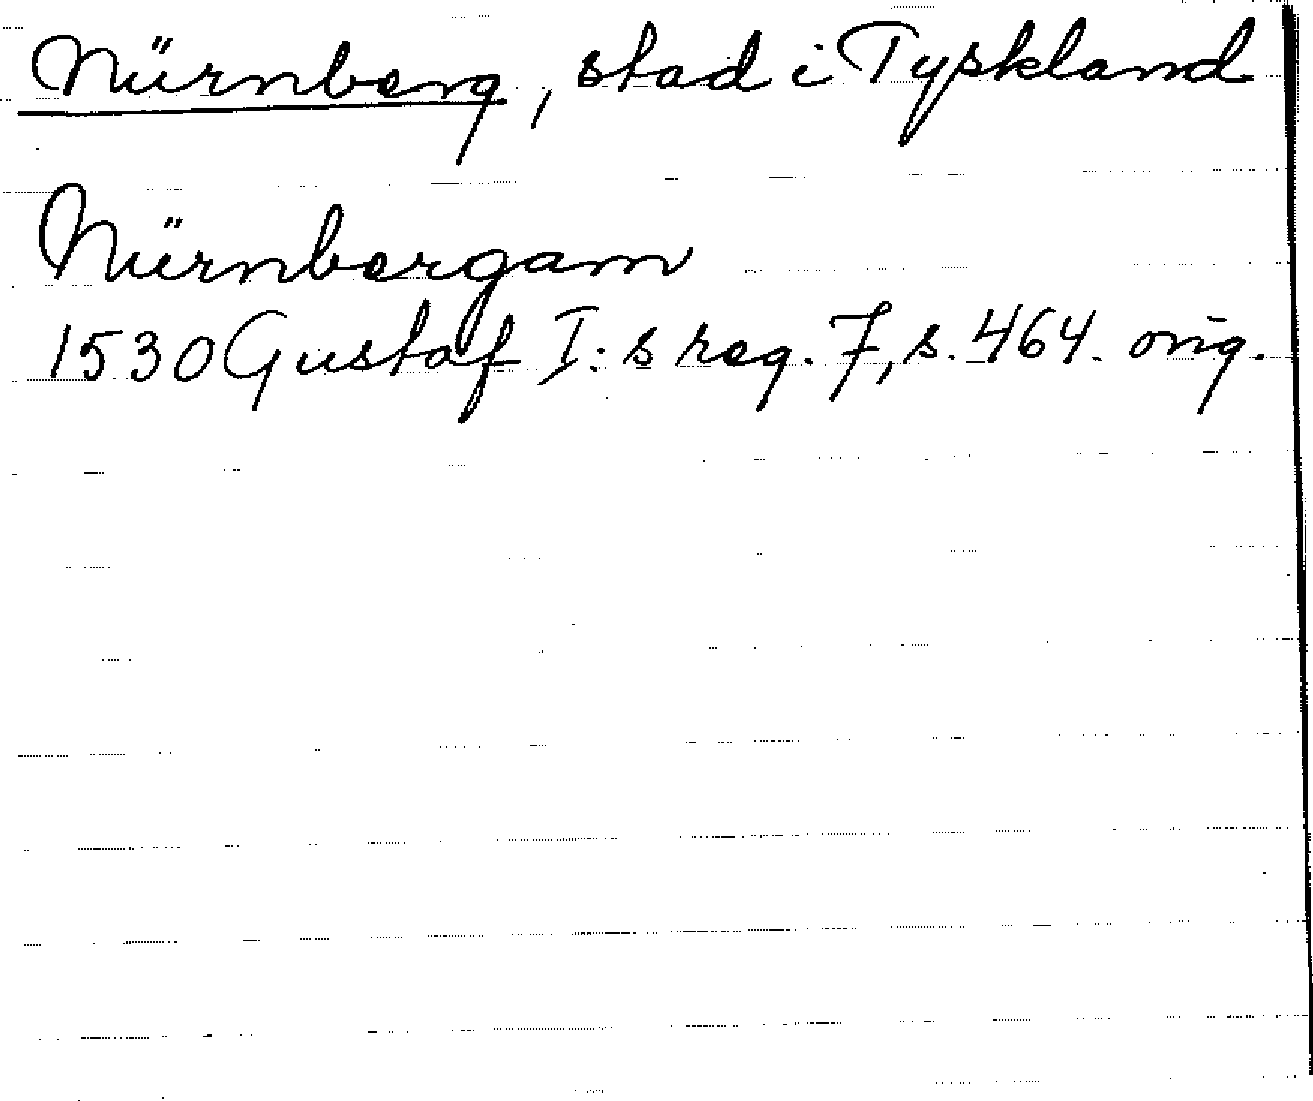 Nürnberg, stad i Tyskland
Nürnbergam
1530 Gustaf I:s reg. 7, s. 464. orig.